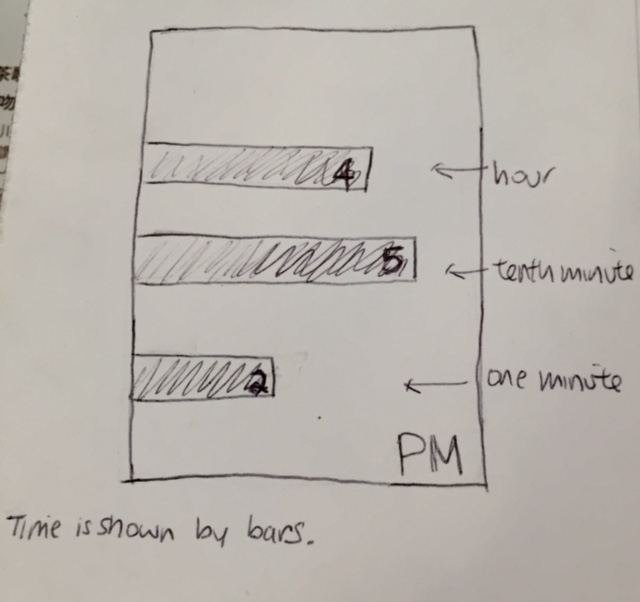 4
hour
5
tenth minute
2
one minute
PM
Time is shown by bars.